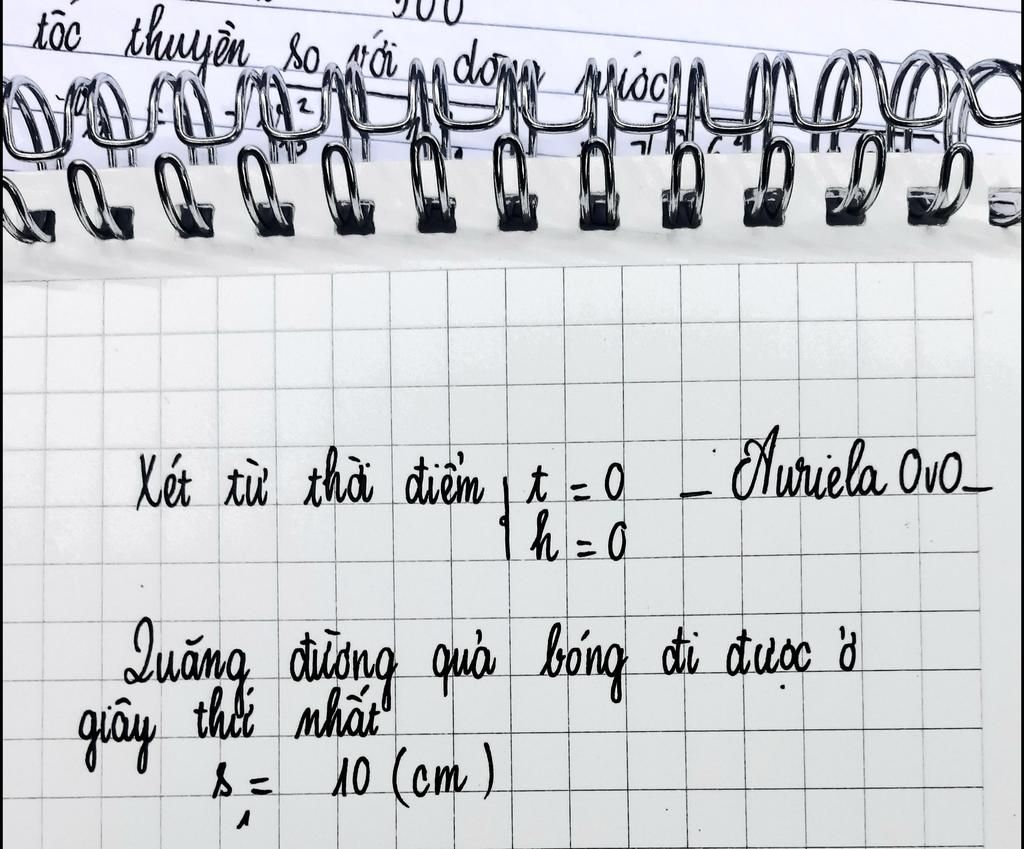 tốc thuyền so với dòng nước
Xét từ thời điểm { t = 0 _ Auriela OvO _
h = 0
Quãng đường quả bóng đi được ở
giây thứ nhất
s₁ = 10 (cm)